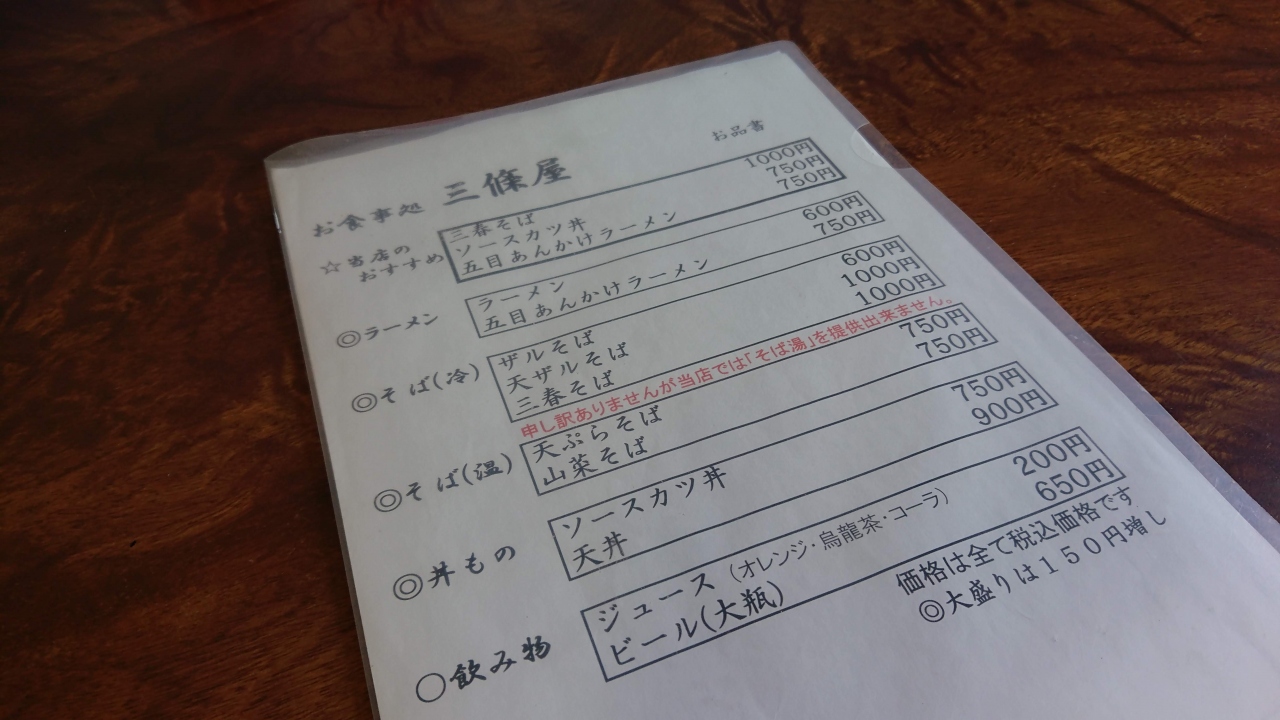 お品書
お食事処 三條屋
☆当店の
おすすめ
三春そば 1000円
ソースカツ丼 750円
五目あんかけラーメン 750円
◎ラーメン
ラーメン 600円
五目あんかけラーメン 750円
◎そば(冷)
ザルそば 600円
天ザルそば 1000円
三春そば 1000円
申し訳ありませんが当店では「そば湯」を提供出来ません。
◎そば(温)
天ぷらそば 750円
山菜そば 750円
◎丼もの
ソースカツ丼 750円
天丼 900円
○飲み物
ジュース (オレンジ・烏龍茶・コーラ) 200円
ビール(大瓶) 650円
価格は全て税込価格です
◎大盛りは150円増し